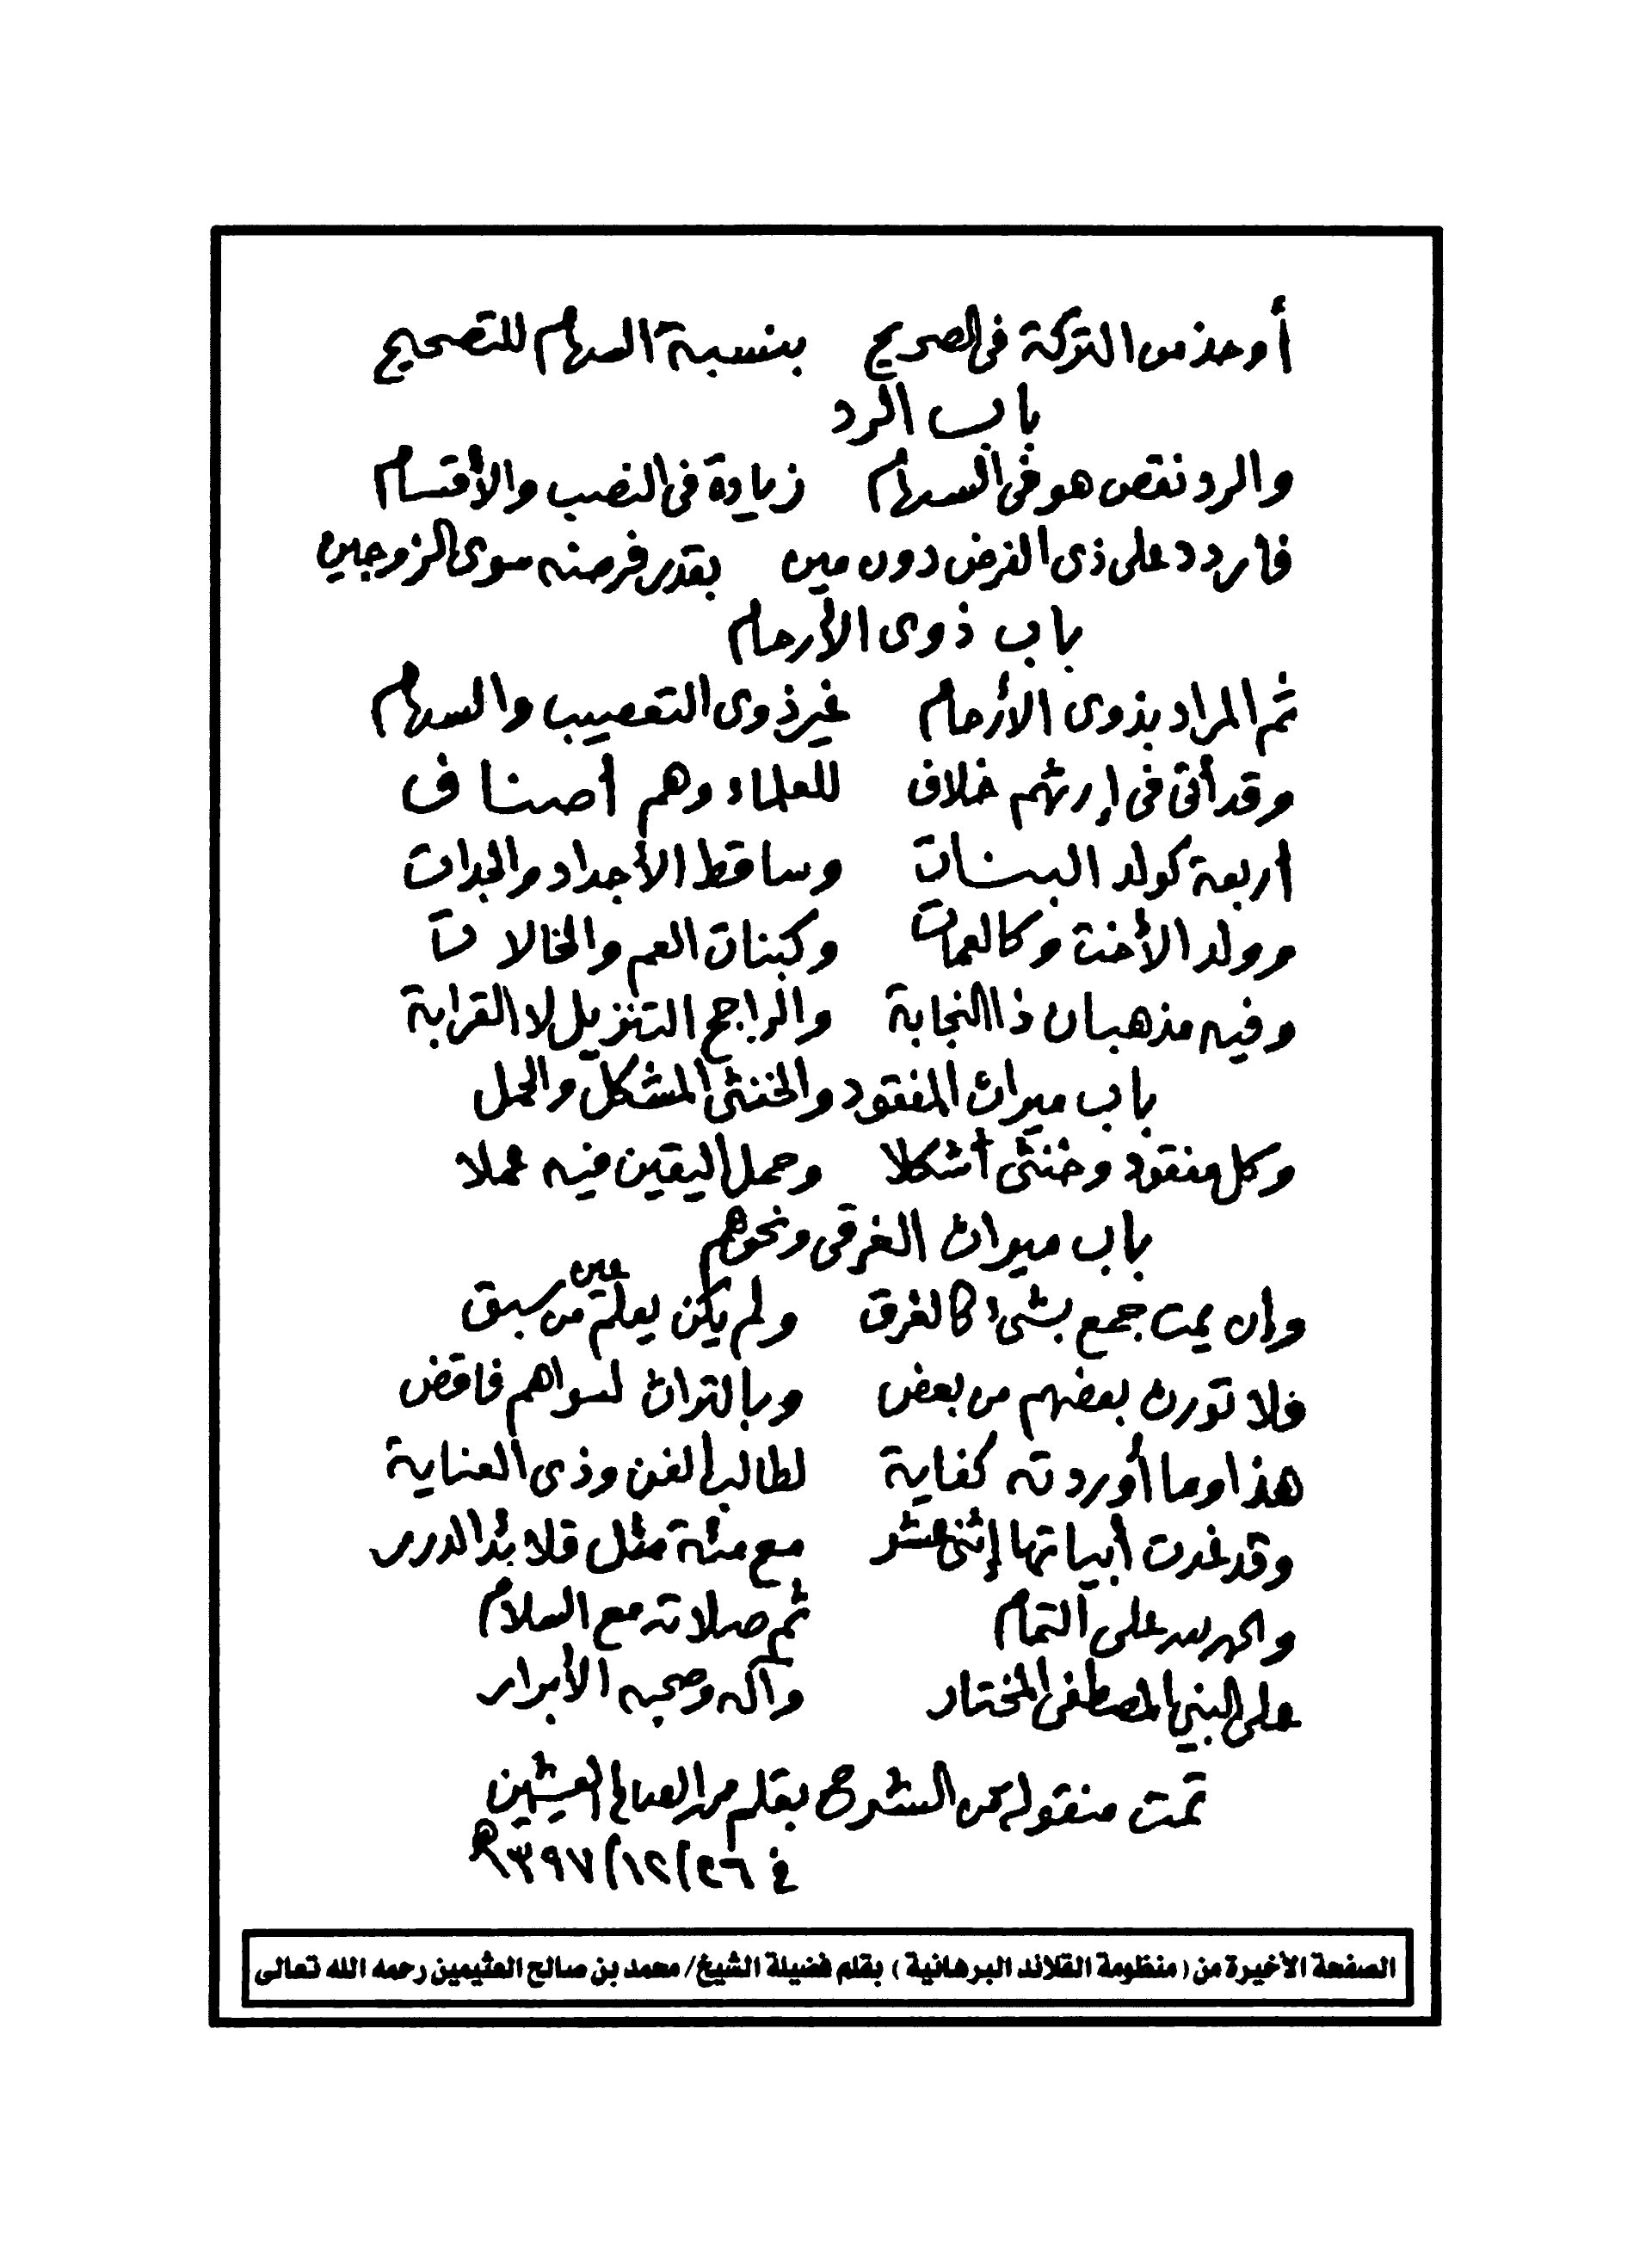 أو خذ من التركة في الصريح بنسبة السهام للتصحيح
باب الرد
والرد نقص هو في السهام زيادة في النصب والأقسام
فاردد على ذي الفرض دون مين بقدر فرضه سوى الزوجين
باب ذوي الأرحام
ثم المراد بذوي الأرحام غير ذوي التعصيب والسهام
وقد أتى في إرثهم خلاف للعلماء وهم أصناف
أربعة كولد البنات وساقط الأجداد والجدات
وولد الأخت وكالعمات وكبنات العم والخالات
وفيه مذهبان ذا النجابة والراجح التنزيل لا القرابة
باب ميراث المفقود والخنثى المشكل والحمل
وكل مفقود وخنثى أشكلا وحمل اليقين فيه عملا
باب ميراث الغرقى ونحوهم
وإن يمت جمع بشيء كالغرق ولم يكن يعلم عين من سبق
فلا تورث بعضهم من بعض وبالتراث لسواهم فاقض
هذا وما أوردته كفاية لطالب الفن وذي العناية
وقد غدت أبياتها إثني عشر مع مئة مثل قلائد الدرر
والحمد لله على التمام ثم صلاته مع السلام
على النبي المصطفى المختار وآله وصحبه الأبرار
تمت منقولة من الشرح بقلم محمد الصالح العثيمين
في ٢٦/١٢/١٣٩٧هـ
الصفحة الأخيرة من (منظومة القلائد البرهانية) بقلم فضيلة الشيخ/ محمد بن صالح العثيمين رحمه الله تعالى